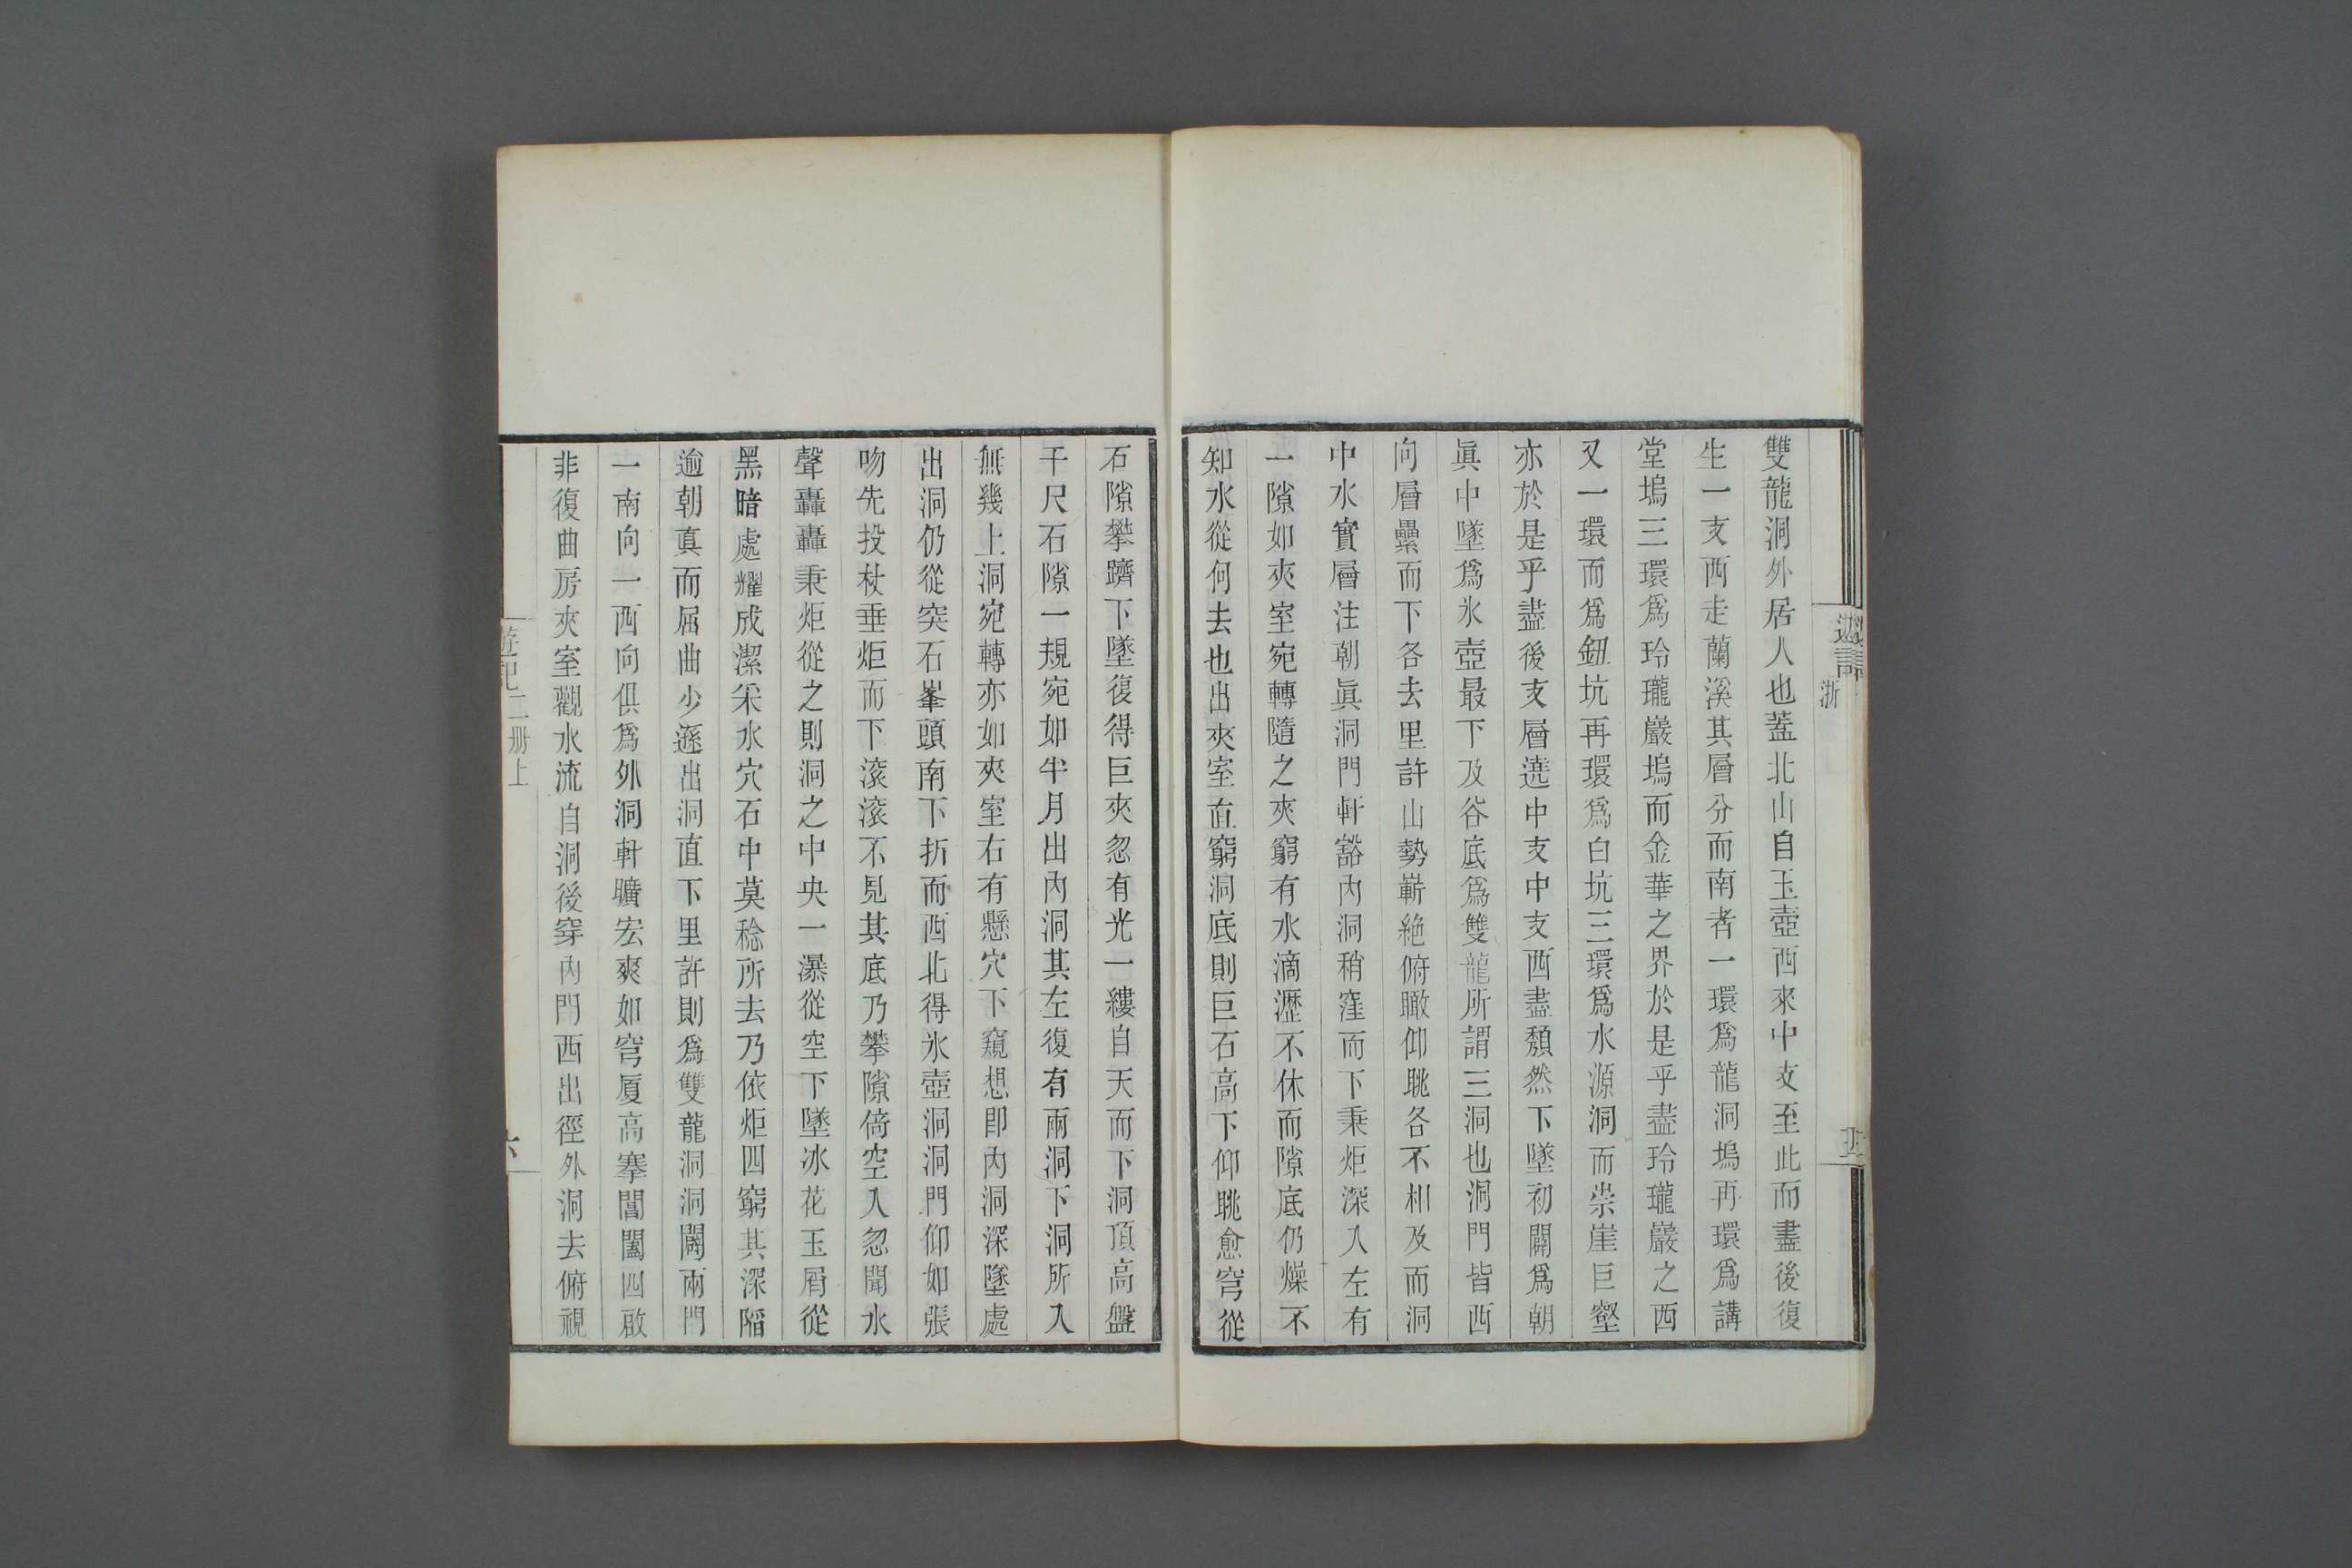 雙龍洞外居人也葢北山自玉壺西來中支至此而盡後復
生一支西走蘭溪其層分而南者一環爲龍洞塢再環爲講
堂塢三環爲玲瓏巖塢而金華之界於是乎盡玲瓏巖之西
又一環而爲鈕坑再環爲白坑三環爲水源洞而崇崖巨壑
亦於是乎盡後支層遶中支中支西盡頹然下墜初闢爲朝
眞中墜爲氷壺最下及谷底爲雙龍所謂三洞也洞門皆西
向層纍而下各去里許山勢嶄絶俯瞰仰眺各不相及而洞
中水實層注朝眞洞門軒豁內洞稍窪而下秉炬深入左有
一隙如夾室宛轉隨之夾窮有水滴瀝不休而隙底仍燥不
知水從何去也出夾室直窮洞底則巨石高下仰眺愈穹從
石隙攀躋下墜復得巨夾忽有光一縷自天而下洞頂高盤
千尺石隙一規宛如半月出內洞其左復有兩洞下洞所入
無幾上洞宛轉亦如夾室右有懸穴下窺想卽內洞深墜處
出洞仍從突石峯頭南下折而西北得氷壺洞洞門仰如張
吻先投杖垂炬而下滚滚不見其底乃攀隙倚空入忽聞水
聲轟轟秉炬從之則洞之中央一瀑從空下墜冰花玉屑從
黑暗處耀成潔采水穴石中莫稔所去乃依炬四窮其深陷
逾朝真而屈曲少遜出洞直下里許則爲雙龍洞洞闢兩門
一南向一西向俱爲外洞軒曠宏爽如穹厦高搴閶闔四啟
非復曲房夾室觀水流自洞後穿內門西出徑外洞去俯視
遊記二册上
浙